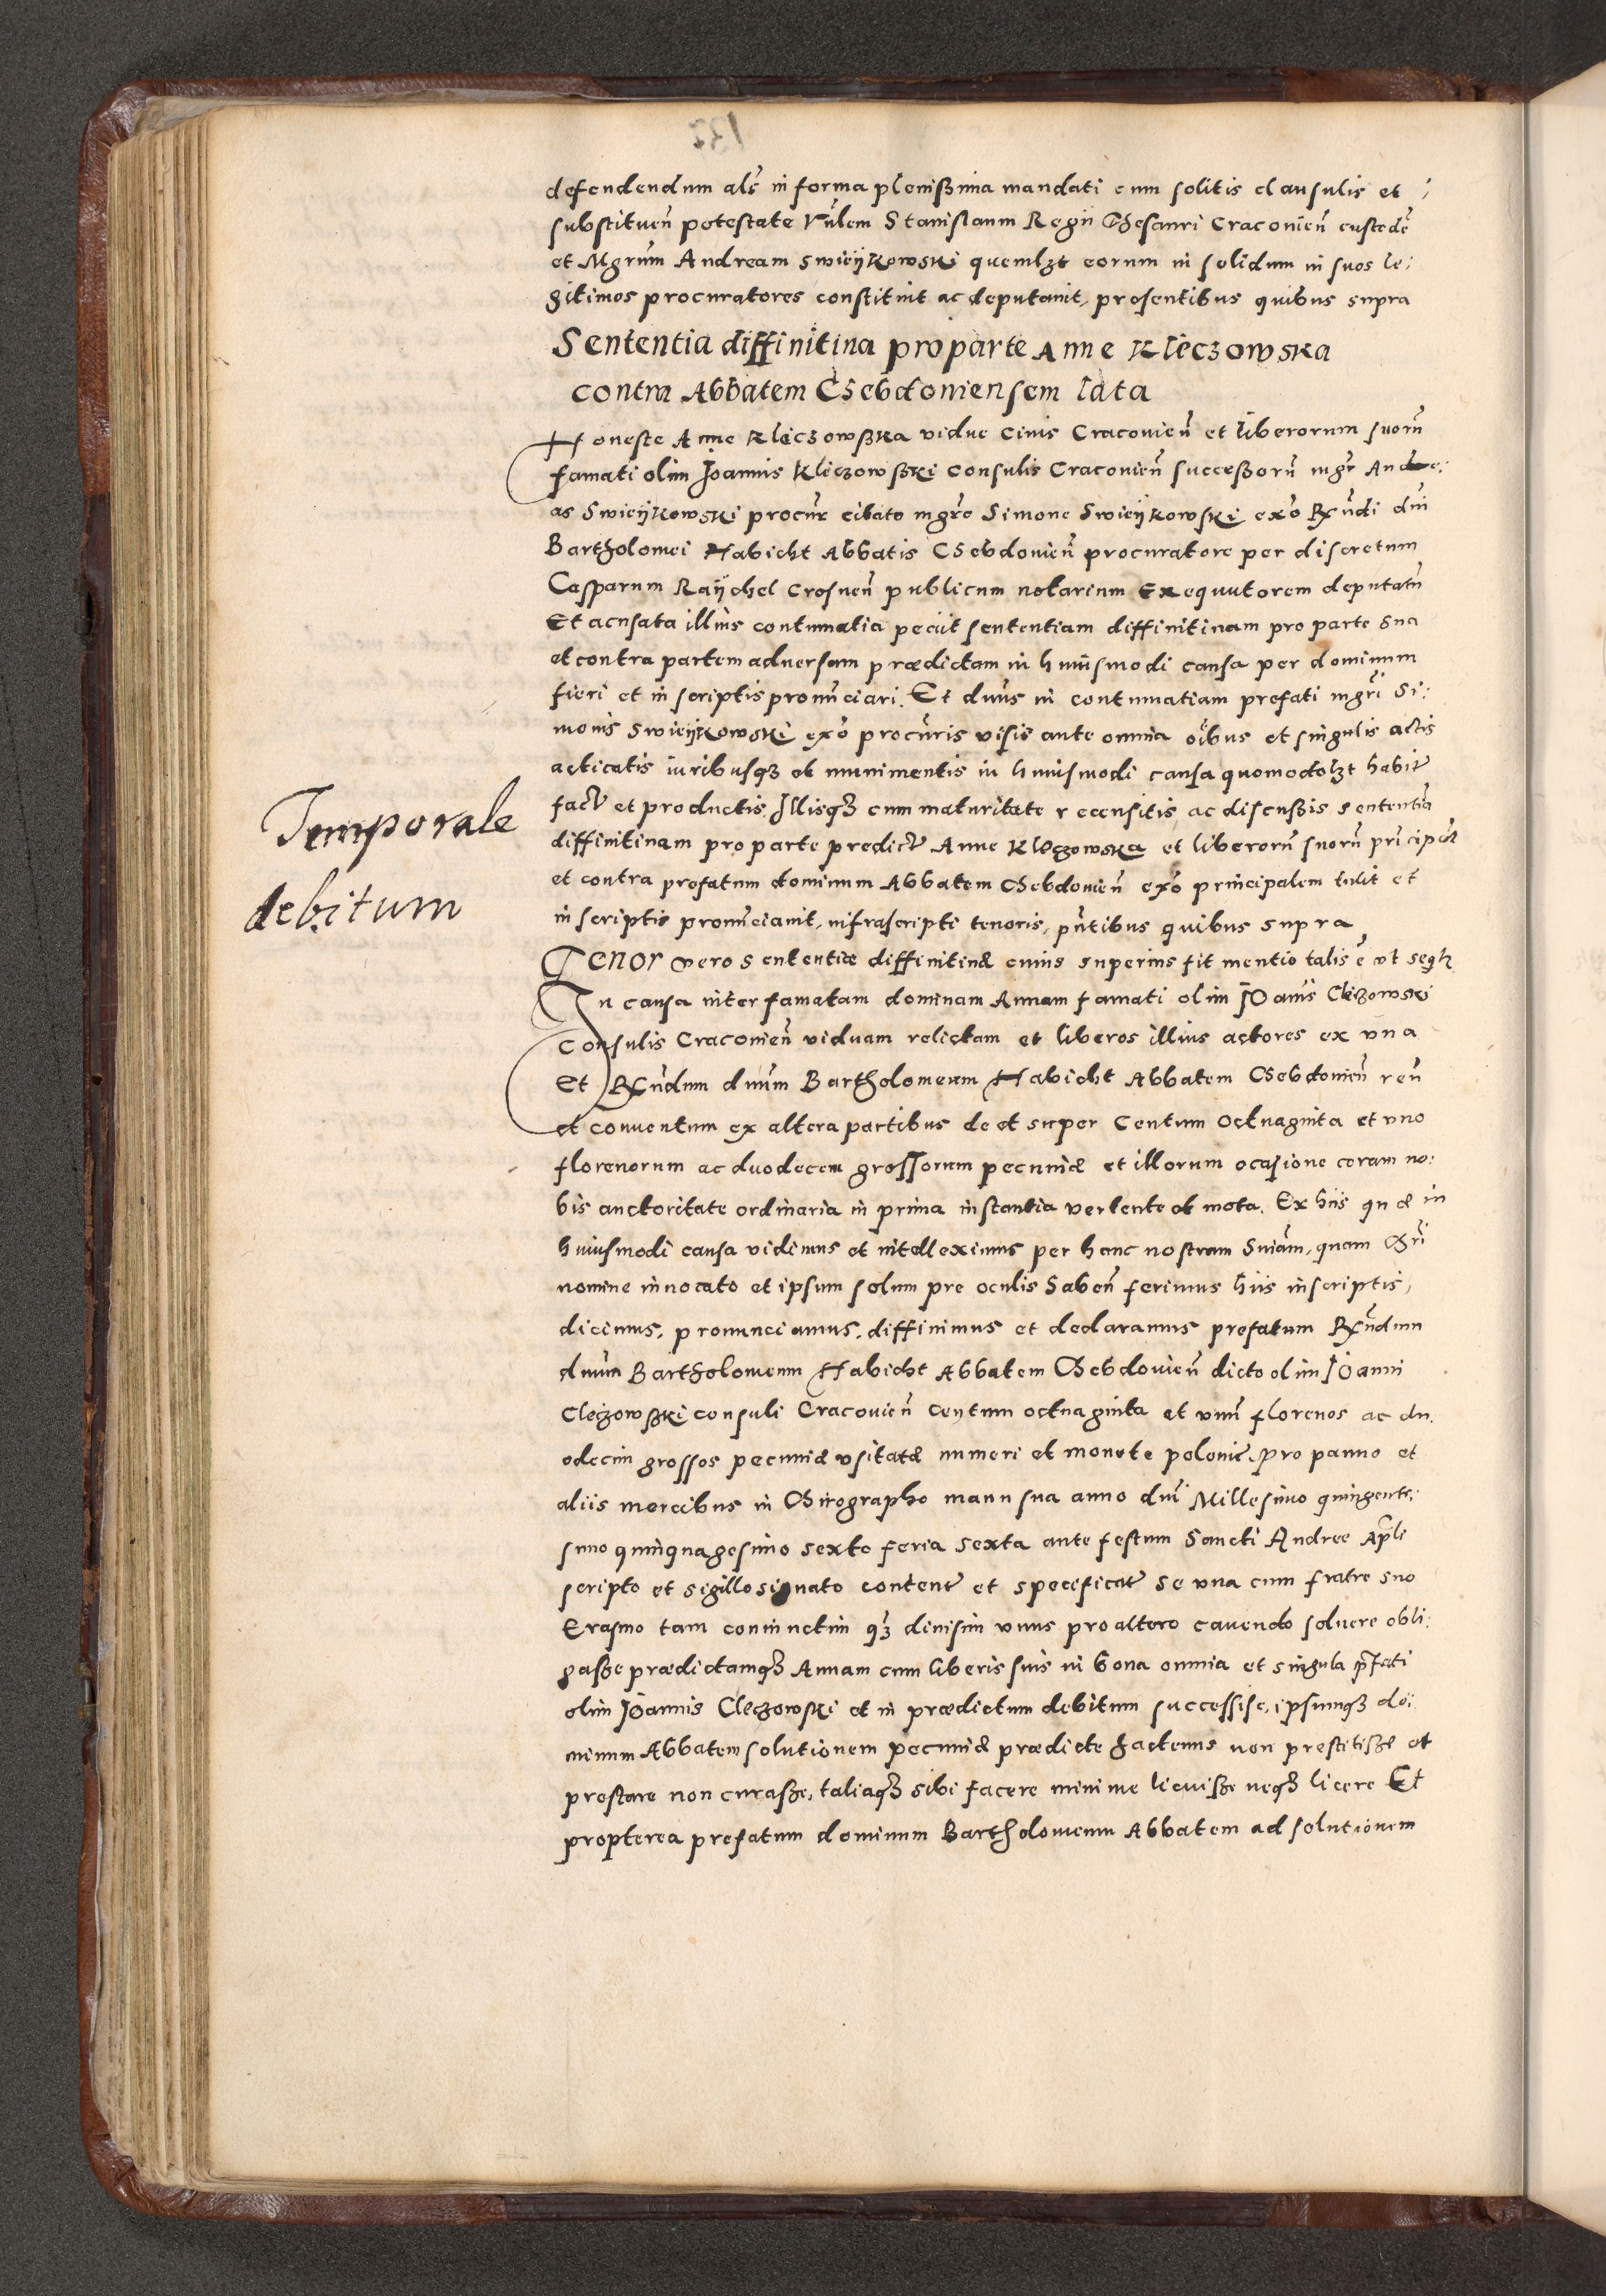 defendendum als in forma plenißima mandati cum solitis clausulis et
substituen̄ potestate Vn̄lem Stanislaum Regij Thesauri Cracovien̄ custodē
et Mgrūm Andream Swieijkowski quemlʒt eorum in solidum in suos le:
gitimos procuratores constituit ac deputauit, presentibus quibus supra
Sententia diffinitiua pro parte Anne Kleczowska
contra Abbatem Chebdouiensem lata
Honeste Anne Kleczowßka vidue Ciuis Cracovien̄ et liberorum suorū
famati olim Joannis Kleczowßki Consulis Cracovien̄ succeßorū mgr̄ Andre:
as Swieijkowski procūr citato mgr̄o Simone Swieijkowski exo̅ Rn̄di dn̄i
Bartholomei Habicht Abbatis Chebdouien̄ procuratore per discretum
Casparum Raijchel Crosnen̄ publicum notarium Exequutorem deputatū
Et acusata illius contumatia peciit sententiam diffinitiuam pro parte sua
et contra partem aduersam prædictam in huiusmodi causa per dominum
fieri et in scriptis pronūciari. Et dn̄us in contumatiam prefati mgr̄i Si:
monis Swieijkowski exo̅ procūris visis ante omnia oi̅bus et singulis actis
acticatis iuribusqʒ et munimentis in huiusmodi causa quomodolʒt habit̄
fact̄ et productis, Illisqʒ cum maturitate recensitis ac discußis sententiā
diffinitiuam pro parte predict̄ Anne Kleczowska et liberorū suorū principal̄
et contra prefatum dominum Abbatem Chebdouien̄ exo̅ principalem tulit et
in scriptis pronūciauit, infrascripti tenoris, pn̄tibus quibus supra
Temporale
debitum
Tenor vero sententiæ diffinitiuæ cuius superius fit mentio talis ē vt seqʳ
In causa inter famatam dominam Annam famati olim Joānis Cleczowski
Consulis Cracouien̄ viduam relictam et liberos illius actores ex vna
Et Rn̄dum dn̄um Bartholomeum Habicht Abbatem Chebdouien̄ reū
et conuentum ex altera partibus de et super Centum Octuaginta et vno
florenorum ac duodecem grossorum pecuniæ et illorum ocasione coram no:
bis auctoritate ordinaria in prima instantia vertente et mota. Ex hiis quæ in
huiusmodi causa vidimus et intelleximus per hanc nostram Sniām, quam Chr̄i
nomine inuocato et ipsum solum pre oculis haben̄ ferimus hiis in scriptis,
dicimus, pronunciamus, diffinimus et declaramus prefatum Rn̄dum
dn̄um Bartholomeum Habicht Abbatem Chebdouien̄ dicto olim Joanni
Cleczowßki consuli Cracouien̄ Centum octuaginta et vnū florenos ac du.
odecim grossos pecuniæ vsitatæ numeri et monete polonic̄ pro panno et
aliis mercibus in Chirographo manu sua anno dn̄i Millesimo quingente:
simo quinquagesimo sexto feria sexta ante festum Sancti Andree Ap̄li
scripto et sigillo signato content̄ et specificat̄ se vna cum fratre suo
Erasmo tam coniunctim qʒ diuisim vnus pro altero cauendo soluere obli:
gaße prædictamqʒ Annam cum liberis suis in bona omnia et singula p̄fati
olim Joannis Cleczowski et in prædictum debitum successise, ipsumqʒ do:
minum Abbatem solutionem pecuniæ prædicte hactenus non prestitiße et
prestare non curaße, taliaqʒ sibi facere minime licuiße neqʒ licere Et
propterea prefatum dominum Bartholomeum Abbatem ad solutionem